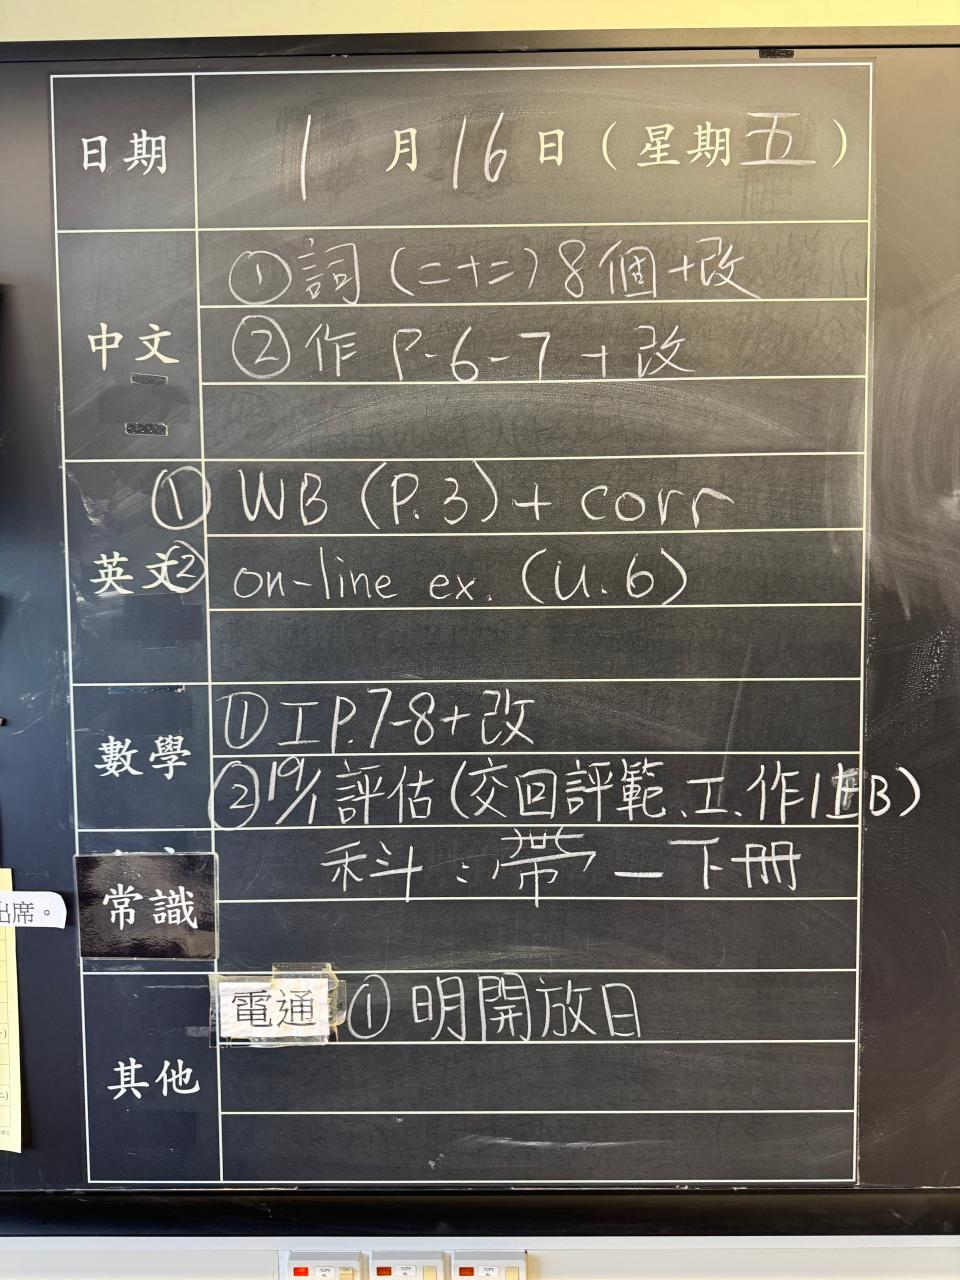 日期 1 月 16 日 ( 星期 五 )
中文
① 詞 (二十二) 8個 + 改
② 作 P.6-7 + 改
英文
① WB (P.3) + corr
② on-line ex. (U.6)
數學
① 工 P.7-8 + 改
② 19/1 評估 (交回評範、工、作1上B)
常識
科：帶一下冊
其他
電通 ① 明開放日
出席。